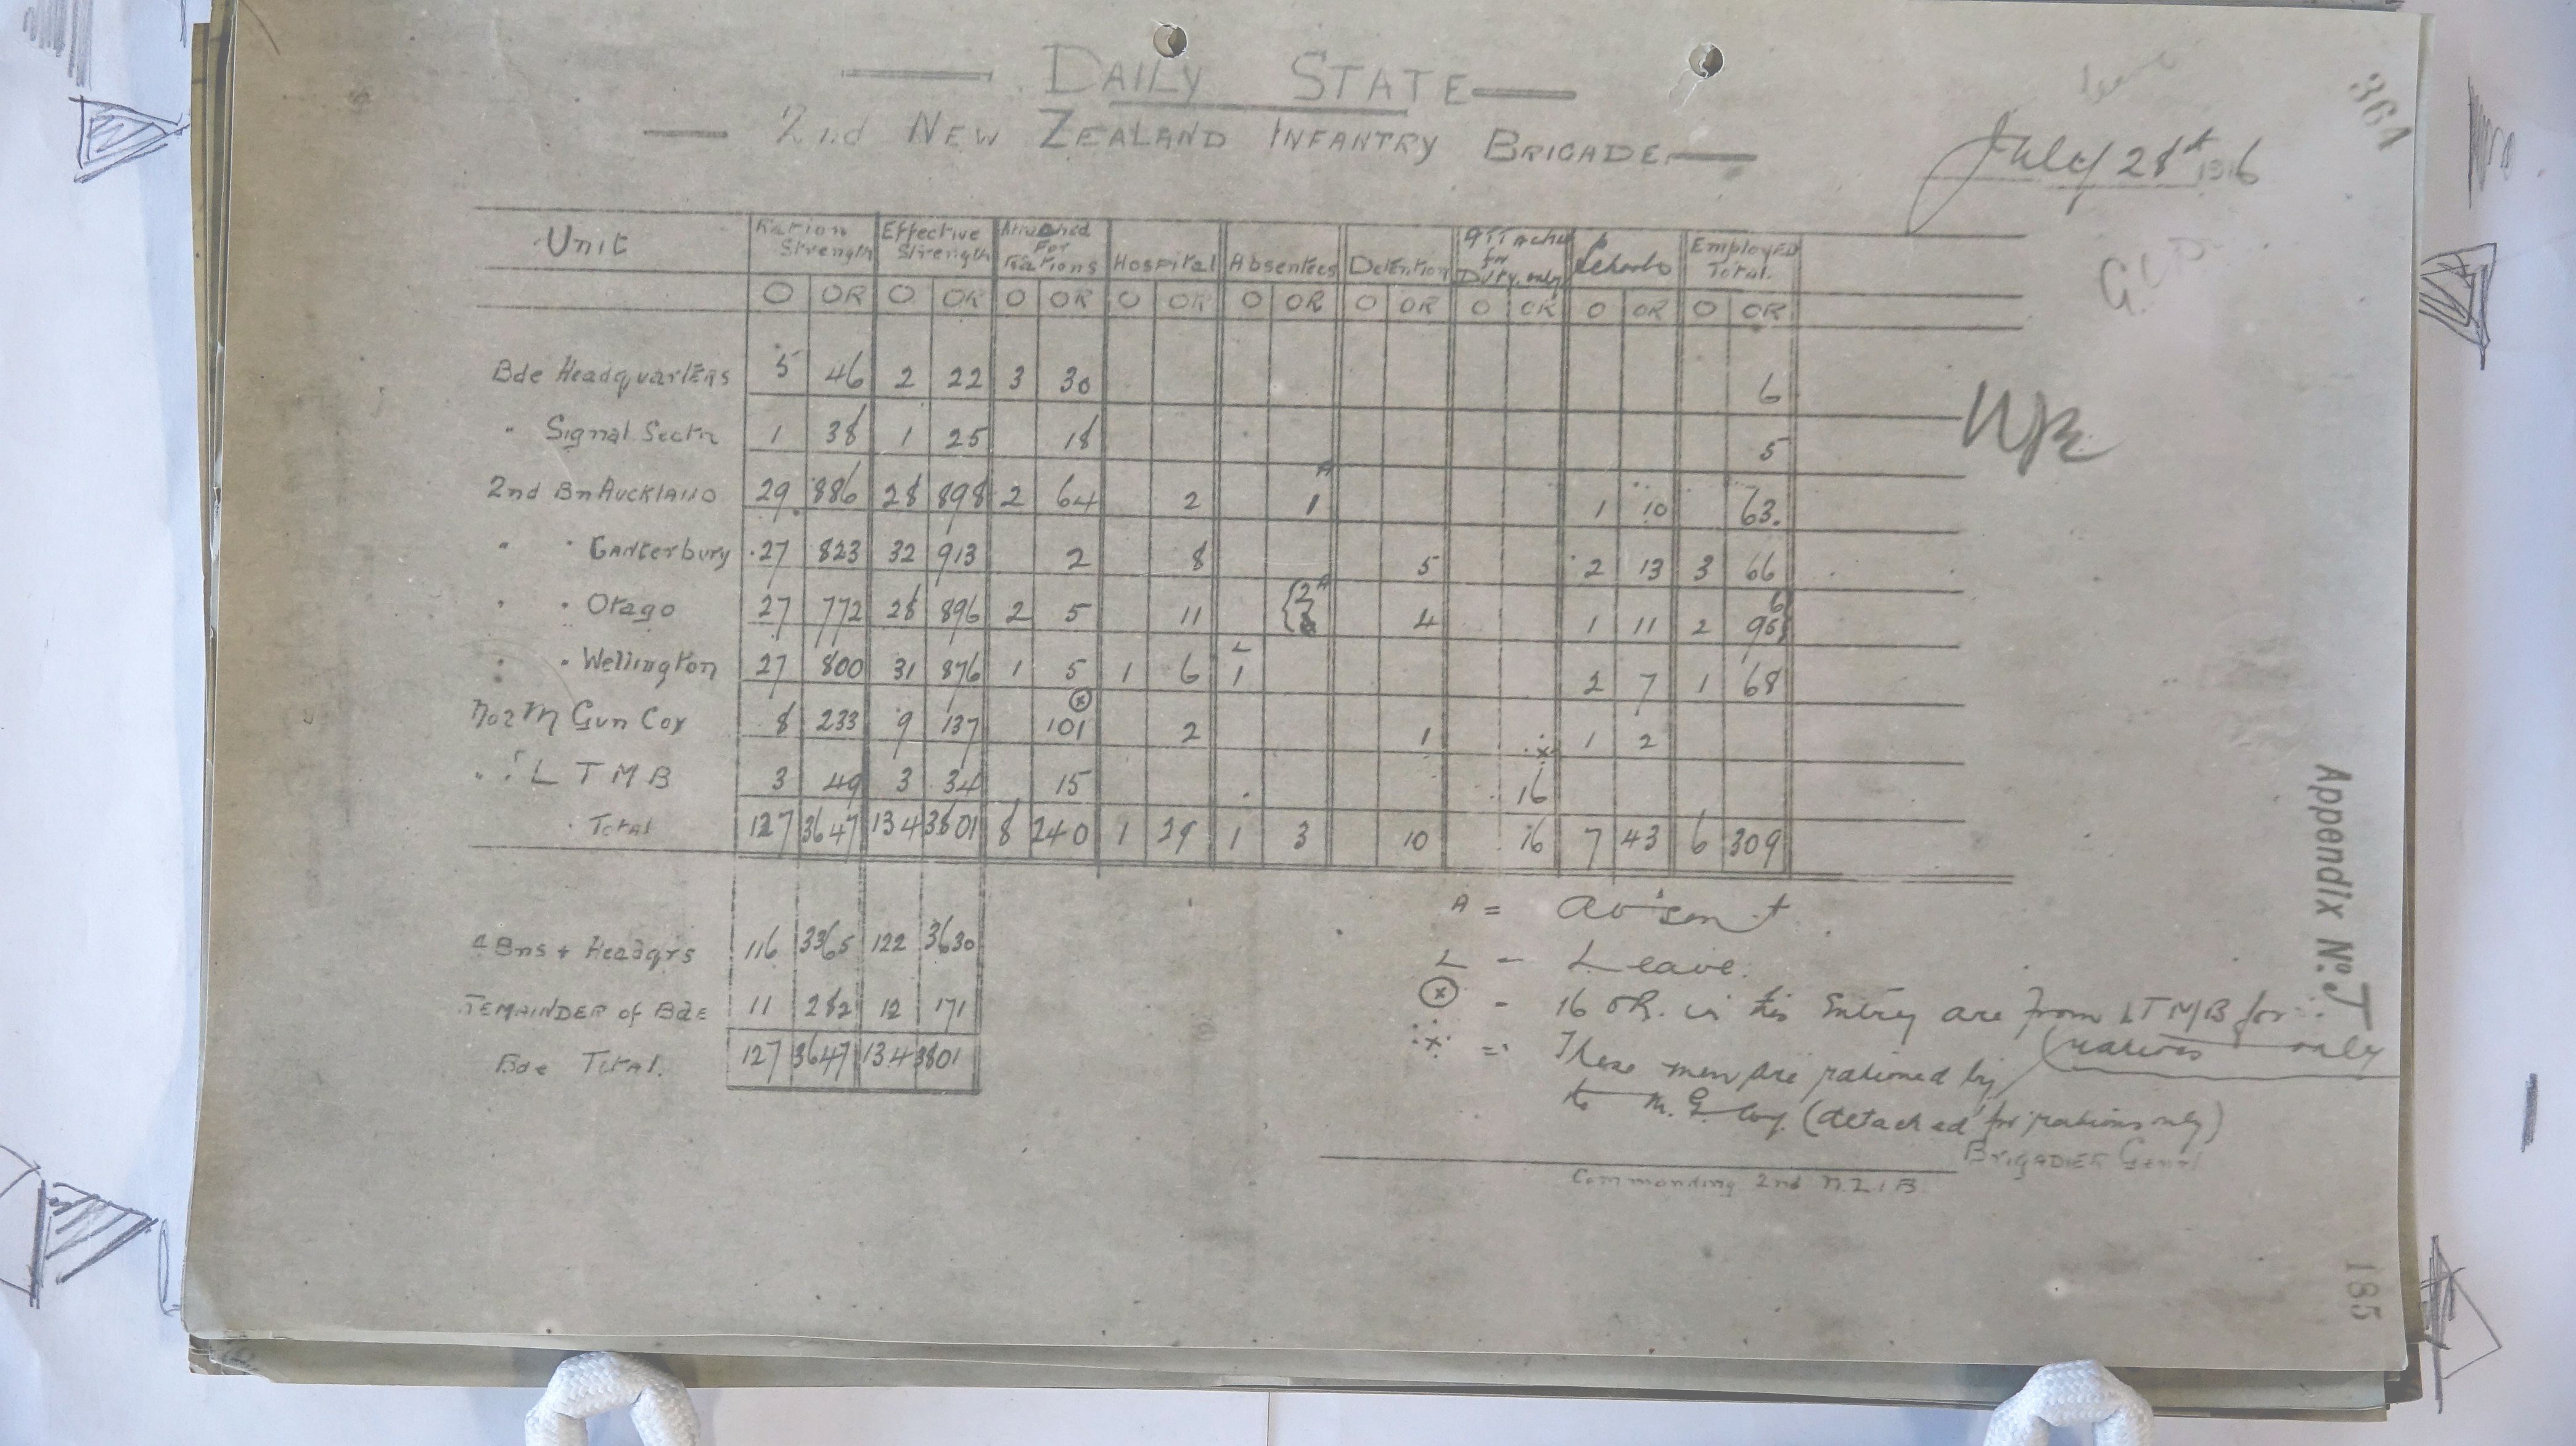 DAILY STATE
2nd NEW ZEALAND INFANTRY BRIGADE
July 28th 1916
364
Unit Ration Strength Effective Strength Attached For Rations Hospital Absentees Detention Attached for Duty only Schools Employed Total.
O OR O OR O OR O OR O OR O OR O OR O OR O OR
Bde Headquarters 5 46 2 22 3 30 6
" Signal Sectn 1 38 1 25 18 5
2nd Bn Auckland 29 886 28 898 2 64 2 A 1 1 10 63.
" " Canterbury 27 823 32 913 2 8 5 2 13 3 66
" " Otago 27 772 28 896 2 5 11 2 A 4 1 11 2 96
" " Wellington 27 800 31 876 1 5 1 6 L 1 2 7 1 68
No 2 M Gun Coy 8 233 9 137 ⓧ 101 2 1 1 2
" " L T M B 3 49 3 34 15 ·x· 16
Total 127 3647 134 3801 8 240 1 29 1 3 10 16 7 43 6 309
4 Bns + Headqrs 116 3365 122 3630
REMAINDER of Bde 11 282 12 171
Bde Total. 127 3647 134 3801
A = absent
L - Leave.
ⓧ - 16 OR. in this Entry are from LTMB for
(rations only
·x· = These men are rationed by
the M. G. Coy. (attached for rations only)
BRIGADIER Genrl
Commanding 2nd N.Z.I.B.
Appendix No. J
185